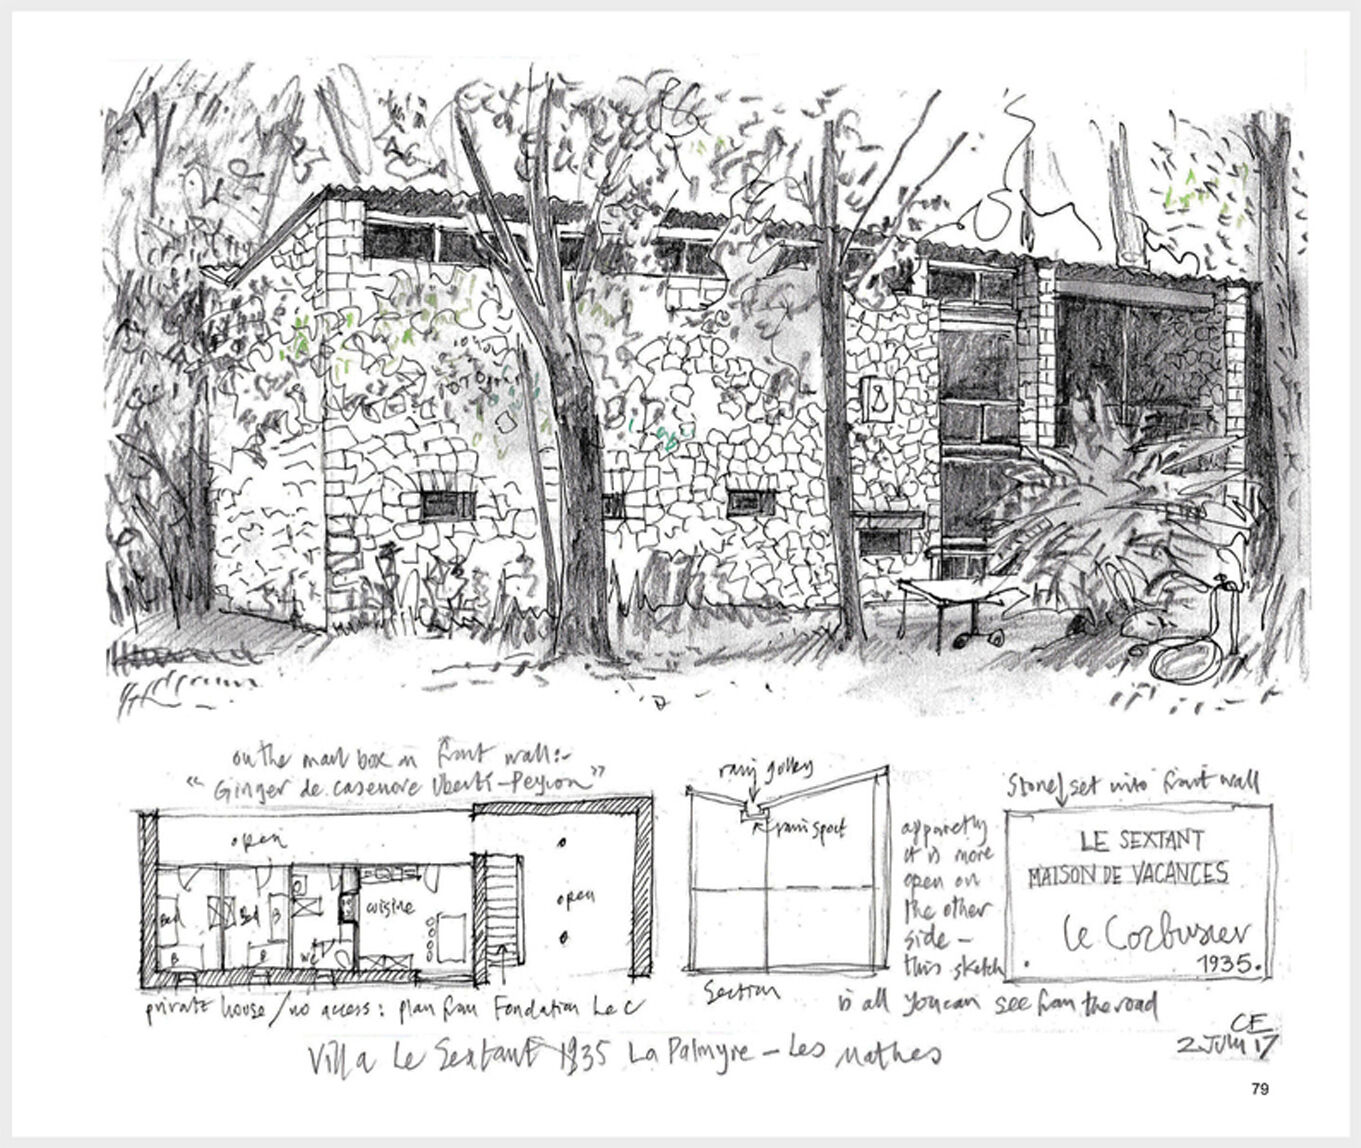 on the mail box on front wall:-
"Ginger de casenove Uberti-Peyron"
open
Bed
Bed
B
B
B
WC
cuisine
open
private house/no access: plan from Fondation Le C
rain gulley
rain spout
Section
apparetly
it is more
open on
the other
side -
this sketch
is all you can see from the road
Stone set into front wall
LE SEXTANT
MAISON DE VACANCES
Le Corbusier
1935.
Villa Le Sextant 1935 La Palmyre - Les Mathes
CE
2 July 17
79